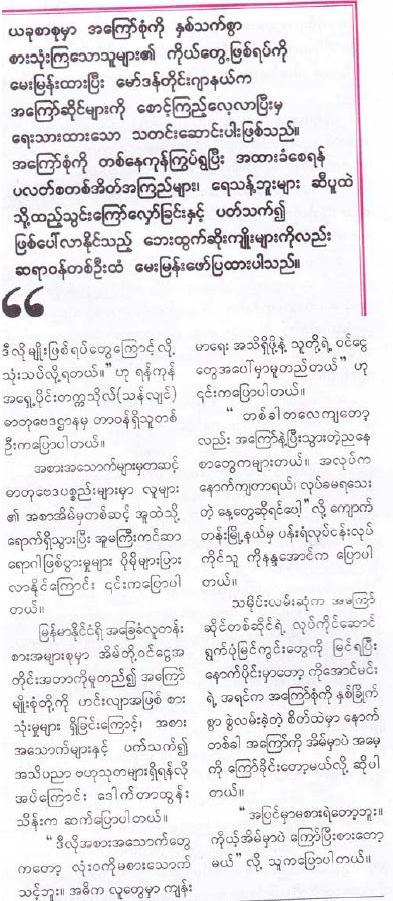 ယခုစာစုမှာ အကြော်စုံကို နှစ်သက်စွာ
စားသုံးကြသောသူများ၏ ကိုယ်တွေ့ဖြစ်ရပ်ကို
မေးမြန်းထားပြီး မော်ဒန်တိုင်းဂျာနယ်က
အကြော်ဆိုင်များကို စောင့်ကြည့်လေ့လာပြီးမှ
ရေးသားထားသော သတင်းဆောင်းပါးဖြစ်သည်။
အကြော်စုံကို တစ်နေကုန်ကြွပ်ရွပြီး အထားခံစေရန်
ပလတ်စတစ်အိတ်အကြည်များ၊ ရေသန့်ဘူးများ ဆီပူထဲ
သို့ထည့်သွင်းကြော်လှော်ခြင်းနှင့် ပတ်သက်၍
ဖြစ်ပေါ်လာနိုင်သည့် ဘေးထွက်ဆိုးကျိုးများကိုလည်း
ဆရာဝန်တစ်ဦးထံ မေးမြန်းဖော်ပြထားပါသည်။
“
ဒီလိုမျိုးဖြစ်ရပ်တွေကြောင့်လို့
သုံးသပ်လို့ရတယ်။” ဟု ရန်ကုန်
အရှေ့ပိုင်းတက္ကသိုလ်(သန်လျင်)
ဓာတုဗေဒဌာနမှ တာဝန်ရှိသူတစ်
ဦးကပြောပါတယ်။
အစားအသောက်များမှတဆင့်
ဓာတုဗေဒပစ္စည်းများမှာ လူများ
၏ အစာအိမ်မှတစ်ဆင့် အူထဲသို့
ရောက်ရှိသွားပြီး အူမကြီးကင်ဆာ
ရောဂါဖြစ်ပွားမှုများ ပိုမိုများပြား
လာနိုင်ကြောင်း ၎င်းကပြောပါ
တယ်။
မြန်မာနိုင်ငံရှိ အခြေခံလူတန်း
စားအများစုမှာ အိမ်တို့ဝင်ငွေအ
တိုင်းအတာကိုမူတည်၍ အကြော်
မျိုးစုံတို့ကို ဟင်းလျာအဖြစ် စား
သုံးမှုများ ရှိခြင်းကြောင့်၊ အစား
အသောက်များနှင့် ပက်သက်၍
အသိပညာ ဗဟုသုတများရှိရန်လို
အပ်ကြောင်း ဒေါက်တာထွန်း
သိန်းက ဆက်ပြောပါတယ်။
“ဒီလိုအစားအသောက်တွေ
ကတော့ လုံးဝကိုမစားသောက်
သင့်ဘူး။ အဓိက လူတွေမှာ ကျန်း
မာရေး အသိရှိဖို့နဲ့ သူတို့ရဲ့ ဝင်ငွေ
တွေအပေါ်မှာမူတည်တယ်” ဟု
၎င်းကပြောပါတယ်။
“ တစ်ခါတလေကျတော့
လည်း အကြော်နဲ့ပြီးသွားတဲ့ညနေ
စာတွေကများတယ်။ အလုပ်က
နောက်ကျတာရယ်၊ လုပ်ခမရသေး
တဲ့ နေ့တွေဆိုရင်ပေါ့”လို့ ကျောက်
တန်းမြို့နယ်မှ ပန်းရံလုပ်ငန်းလုပ်
ကိုင်သူ ကိုနန္ဒအောင်က ပြောပါ
တယ်။
သမိုင်းလမ်းဆုံက အကြော်
ဆိုင်တစ်ဆိုင်ရဲ့ လုပ်ကိုင်ဆောင်
ရွက်ပုံမြင်ကွင်းတွေကို မြင်ရပြီး
နောက်ပိုင်းမှာတော့ ကိုအောင်မင်း
ရဲ့ အရင်က အကြော်စုံကို နှစ်ခြိုက်
စွာ စွဲလမ်းခဲ့တဲ့ စိတ်ထဲမှာ နောက်
တစ်ခါ အကြော်ကို အိမ်မှာပဲ အမေ့
ကို ကြော်ခိုင်းတော့မယ်လို့ ဆိုပါ
တယ်။
“အပြင်မှာမစားရဲတော့ဘူး။
ကိုယ့်အိမ်မှာပဲ ကြော်ပြီးစားတော့
မယ်” လို့ သူကပြောပါတယ်။